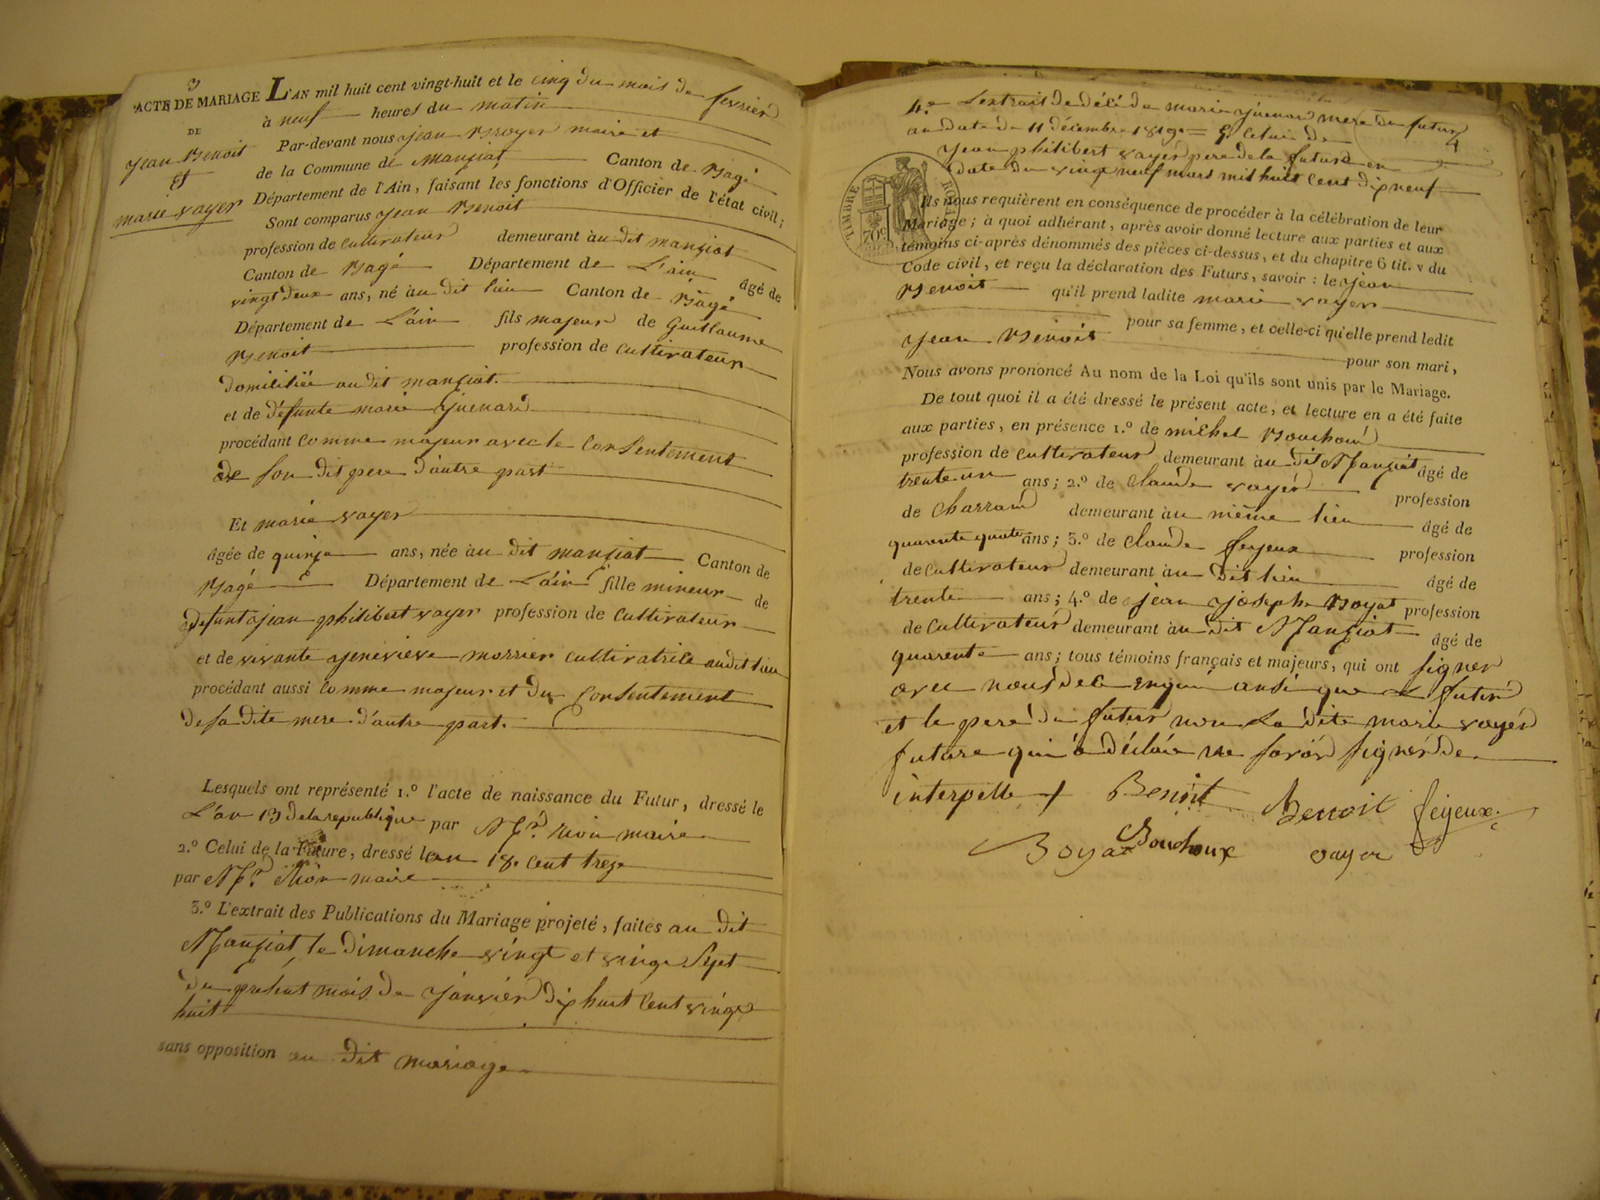 3
ACTE DE MARIAGE
DE
jean Benoit
Et
marie vayer
L'AN mil huit cent vingt-huit et le cinq du mois de fevrier
à neuf heures du matin
Par-devant nous jean Broyer maire et
de la Commune de Manziat Canton de Bagé
Département de l'Ain, faisant les fonctions d'Officier de l'état civil;
Sont comparus jean Benoit
profession de Cultivateur demeurant au dit manziat
Canton de Bagé Département de L'ain âgé de
vingt deux ans, né au dit lieu Canton de Bagé
Département de L'ain fils majeur de Guillaume
Benoit profession de Cultivateur
domiliiée au dit manziat.
et de défunte marie Guenard
procédant Comme majeur avec le Consentement
de son dit pere d'autre part
Et marie vayer
âgée de quinze ans, née au dit manziat Canton de
Bagé Département de L'ain fille mineur de
defunt jean philibert vayer profession de Cultivateur
et de vivante genevieve morrier Cultivatrice audit lieu
procédant aussi Comme majeur et du Consentement
de sa dite mere d'autre part.
Lesquels ont représenté 1.º l'acte de naissance du Futur, dressé le
L'an 13 de la republique par maire
2.º Celui de la Future, dressé l'an 18 cent treze
par maire
3.º L'extrait des Publications du Mariage projeté, faites au dit
Manziat, le dimanche vingt et vingt Sept
du présent mois de janvier dix huit Cent vingt
huit
sans opposition au dit mariage
4
4º L'extrait de décé de marie guenard mere du futur
au date du 11 décembre 1819 = & Celui de
jean philibert vayer pere de la future en
date du vingt neuf mars mil huit Cent dix neuf
TIMBRE ROYAL
70c
Ils nous requièrent en conséquence de procéder à la célébration de leur
Mariage; à quoi adhérant, après avoir donné lecture aux parties et aux
témoins ci-après dénommés des pièces ci-dessus, et du chapitre 6 tit. v du
Code civil, et reçu la déclaration des Futurs, savoir: le jean
Benoit qu'il prend ladite marie vayer
pour sa femme, et celle-ci qu'elle prend ledit
jean Benoit pour son mari,
Nous avons prononcé Au nom de la Loi qu'ils sont unis par le Mariage.
De tout quoi il a été dressé le présent acte, et lecture en a été faite
aux parties, en présence 1.º de michel Bouchoud
profession de Cultivateur demeurant au dit Manziat âgé de
trente un ans; 2.º de Claude vayer profession
de Charrand demeurant au même lieu âgé de
quarente quatre ans; 3.º de Claude feyeux profession
de Cultivateur demeurant au dit lieu âgé de
trente ans; 4.º de jean joseph Boyat profession
de Cultivateur demeurant au dit Manziat âgé de
quarente ans; tous témoins français et majeurs, qui ont signer
avec nous de ce ansi que le futur
et le pere du futur non La dite marie vayer
future qui a déclaré ne savoir signer de
interpelle
Benoit Benoit feyeux
Boyat Bouchoux vayer